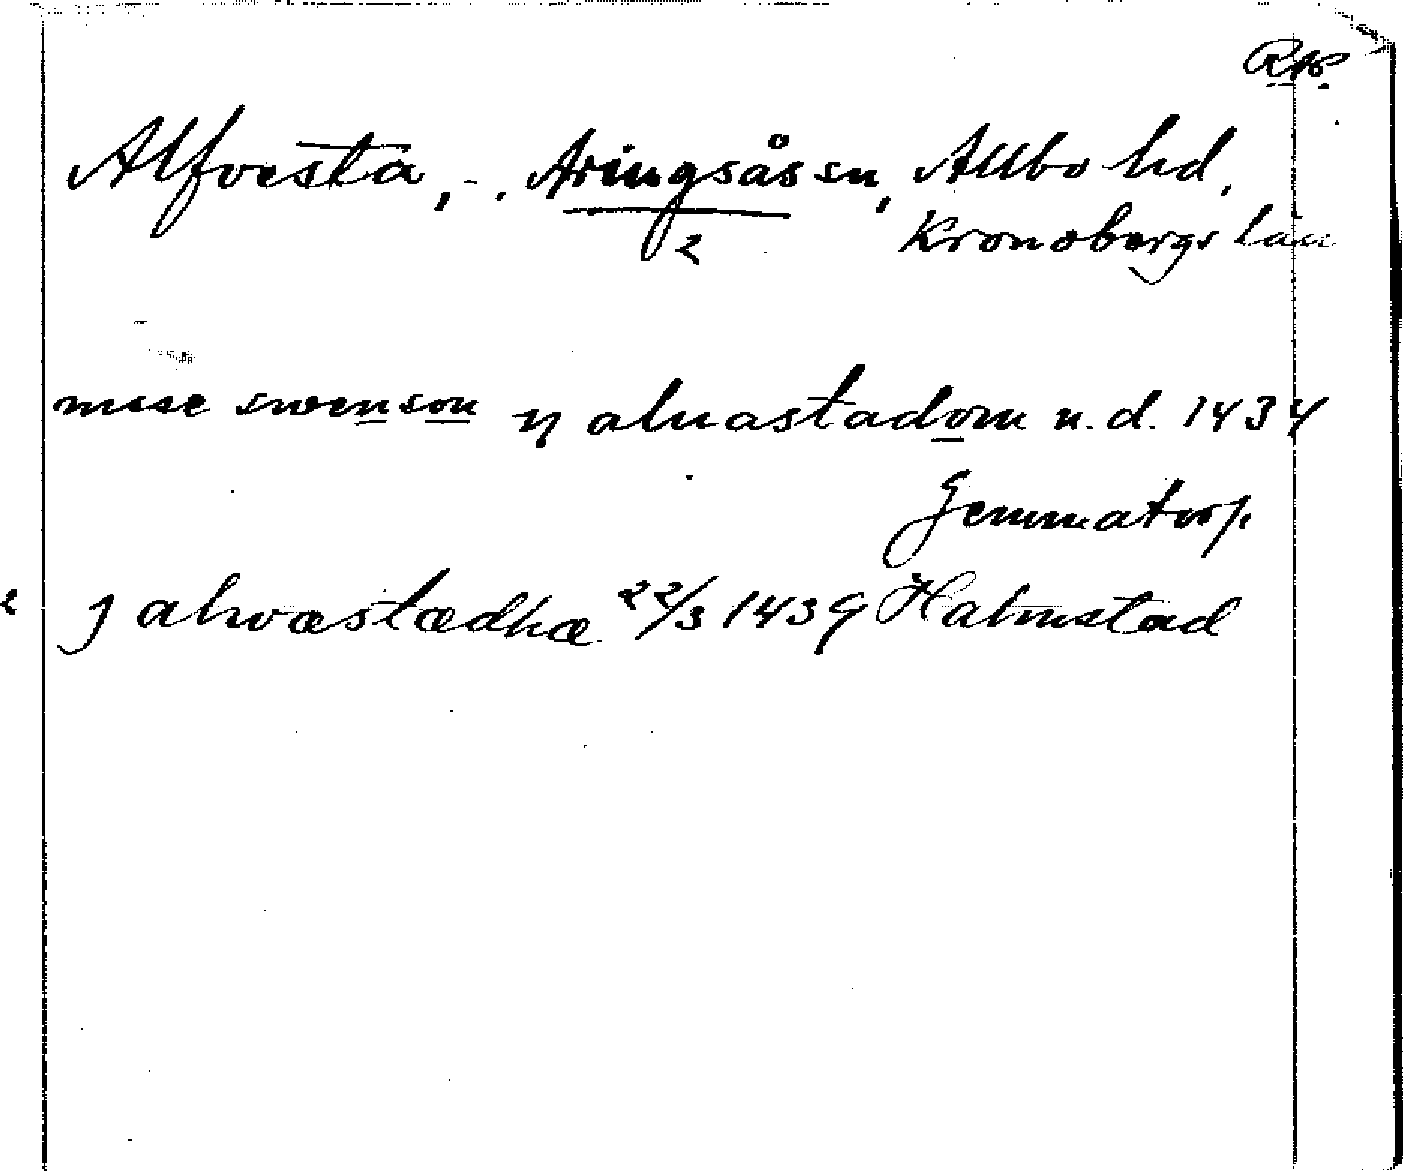 RAP.
Alfvesta, -. Aringsås sn, Allbo hd,
2
Kronobergs län
messe swenson y aluastadom u.d. 1434
Gemmatorp.
2 J alwæstædhæ 22/3 1439 Halmstad